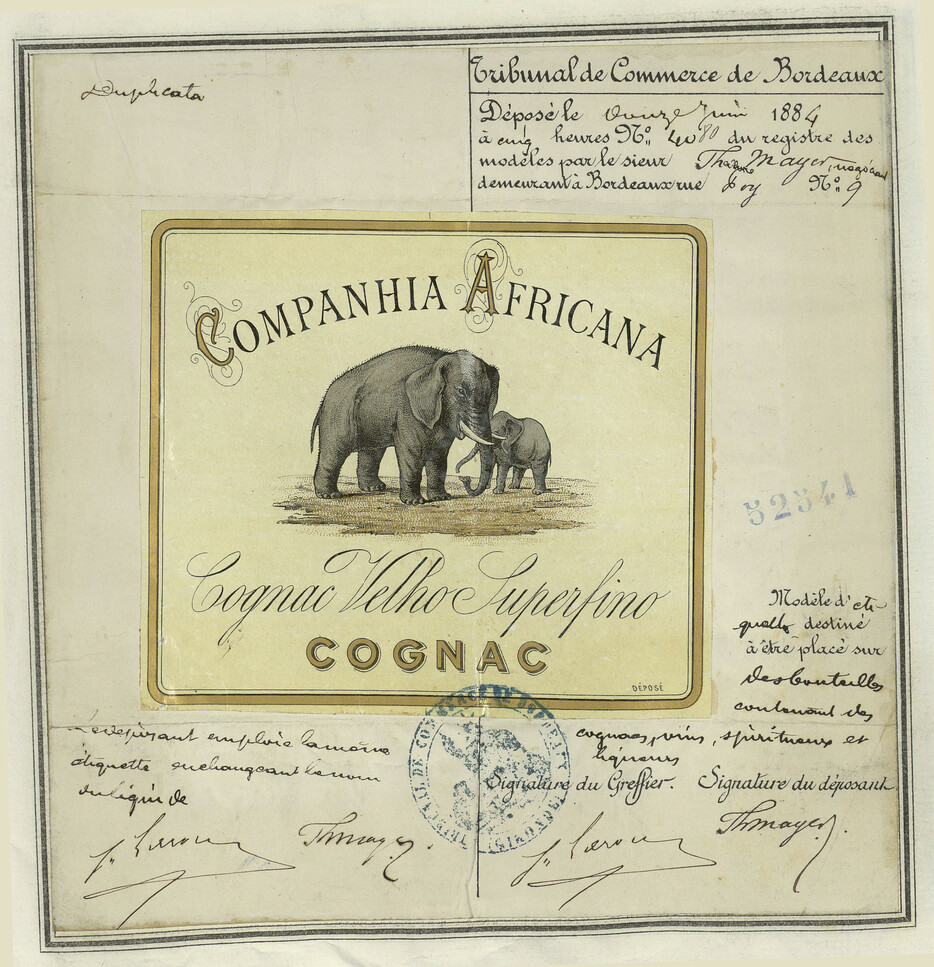 Duplicata
Tribunal de Commerce de Bordeaux
Déposé le douze Juin 1884
à cinq heures No. 4080 du registre des
modèles par le sieur Mayer, négociant
demeurant à Bordeaux rue Foy No. 9
COMPANHIA AFRICANA
Cognac Velho Superfino
COGNAC
DÉPOSÉ
52541
Modèle d'éti-
quette destiné
à être placé sur
des bouteilles
contenant des
cognacs, vins, spiritueux et
liqueurs
Le déposant emploie la même
étiquette en changeant le nom
du liquide
Signature du Greffier. Signature du déposant
Thmayer
Thmayer
TRIBUNAL DE COMMERCE DE BORDEAUX